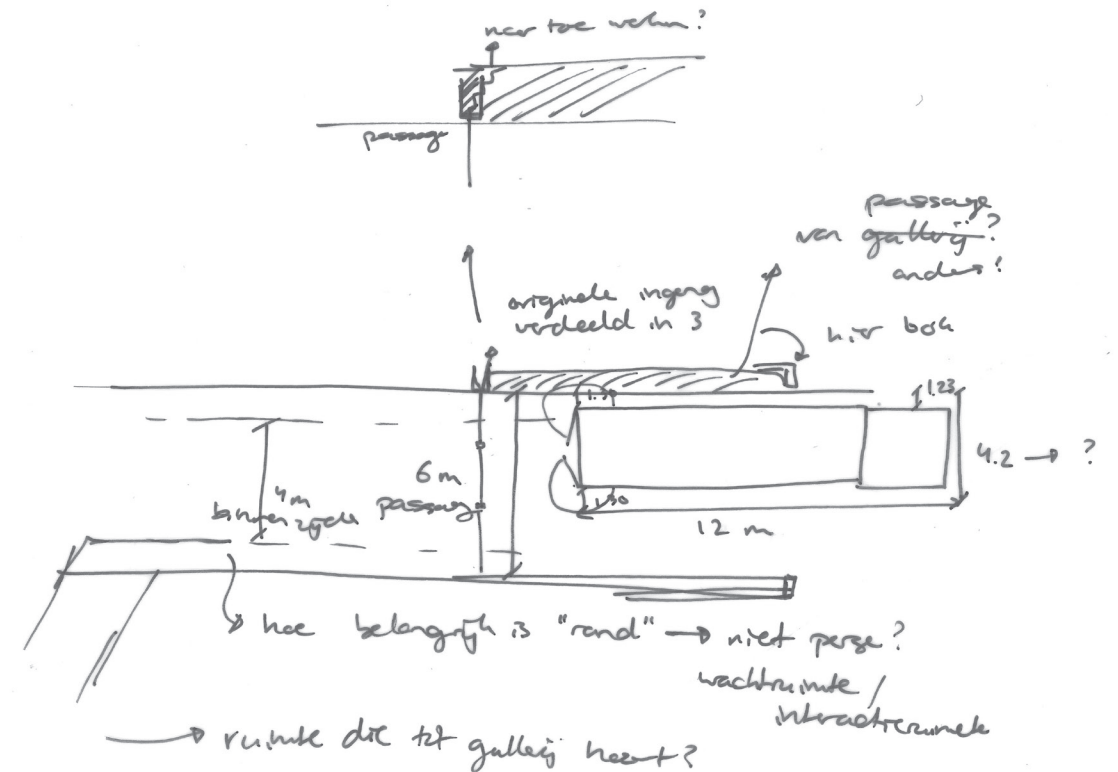 naar toe welven?
passage
passage
van gallerij?
anders?
originele ingang
verdeeld in 3
hier book
1.30
1.23
4.2 → ?
6 m
passage
4 m
binnenzijde
1.30
12 m
hoe belangrijk is "rand" → niet perse?
wachtruimte /
interactieruimte
ruimte die tot gallerij hoort?